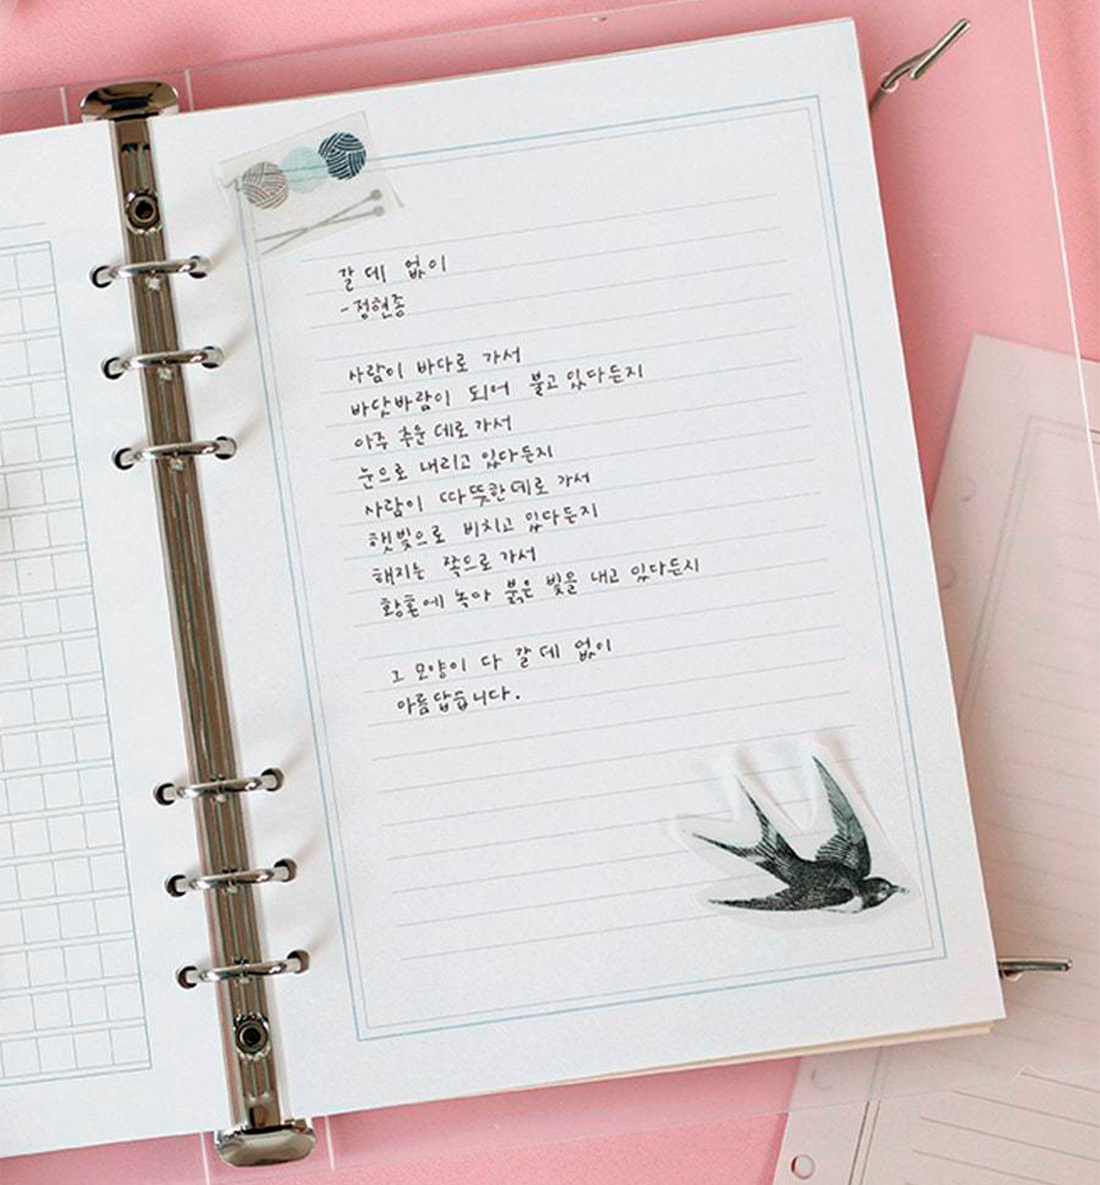 갈 데 없이
-정현종
사람이 바다로 가서
바닷바람이 되어 불고 있다든지
아주 추운 데로 가서
눈으로 내리고 있다든지
사람이 따뜻한 데로 가서
햇빛으로 비치고 있다든지
해지는 쪽으로 가서
황혼에 녹아 붉은 빛을 내고 있다든지
그 모양이 다 갈 데 없이
아름답습니다.